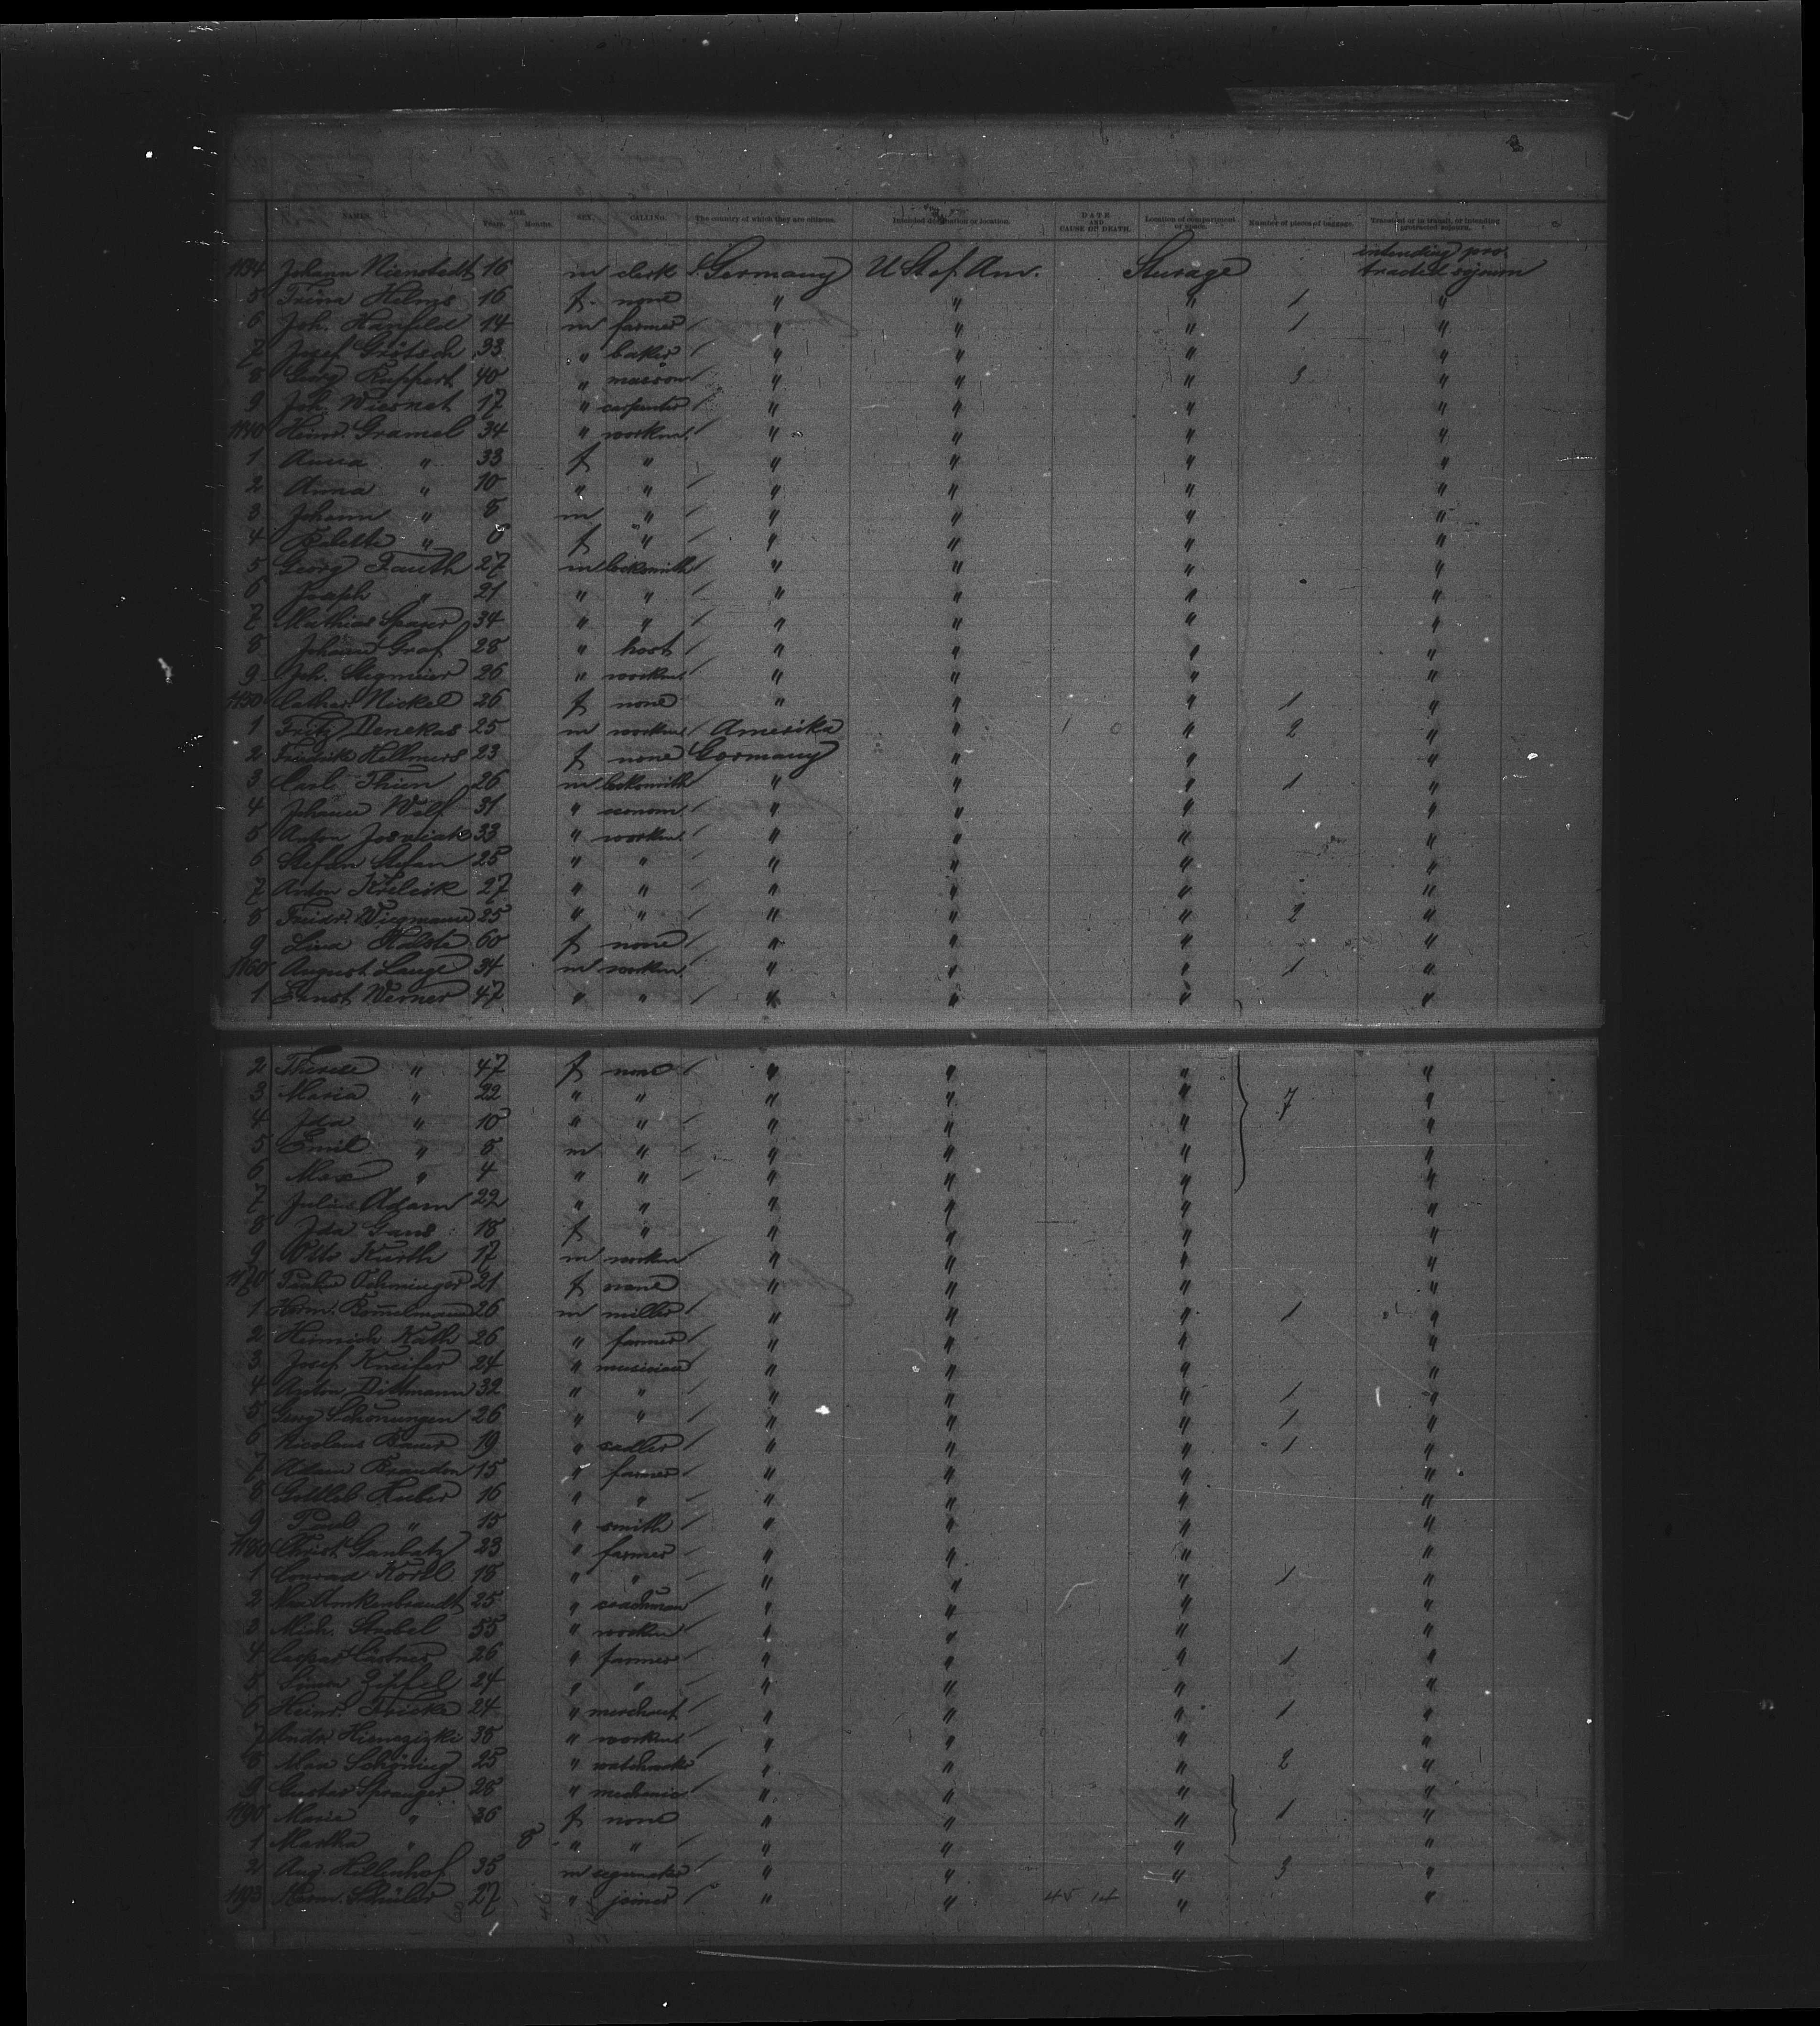 NAMES. AGE. Years. Months. SEX. CALLING. The country of which they are citizens. Intended destination or location. DATE AND CAUSE OF DEATH. Location of compartment or space. Number of pieces of baggage. Transient or in transit, or intending protracted sojourn.
1134 Johann Nienstedt 16 m clerk Germany U St of Am. Sturage intending protracted sojourn
5 Trina Helms 16 f none " " " 1 "
6 Joh. Hanfeld 14 m farmer " " " 1 "
7 Josef Grötsch 33 " baker " " " "
8 Georg Ruppert 40 " masson " " " 3 "
9 Joh. Wiesnet 17 " carpenter " " " "
1140 Heinr. Gramel 34 " workm. " " " "
1 Anna " 33 f " " " " "
2 Anna " 10 " " " " " "
3 Johann " 8 m " " " " "
4 Babette " 6 f " " " " "
5 Georg Fauth 27 m locksmith " " " "
6 Joseph " 21 " " " " " "
7 Mathias Spauer 34 " " " " " "
8 Johann Graf 28 " host " " " "
9 Joh. Stegmeier 26 " workm. " " " "
1150 Cathar. Nickel 26 f none " " " 1 "
1 Fritz Denekas 25 m workm. Amerika " " 2 "
2 Friedrike Hellmers 23 f none Germany " " "
3 Carl Thien 26 m locksmith " " " 1 "
4 Johann Wolf 31 " econom. " " " "
5 Anton 33 " workm. " " " "
6 Stefan Stefan 25 " " " " " "
7 Anton Krelcik 27 " " " " " "
8 Friedr. Wiegmann 25 " " " " " 2 "
9 Lina Halste 60 f none " " " "
1160 August Lange 34 m workm. " " " 1 "
1 Ernst Werner 47 " " " " " "
2 Therese " 47 f none " " " "
3 Maria " 22 " " " " " 7 "
4 Ida " 10 " " " " " "
5 Emil " 8 m " " " " "
6 Max " 4 " " " " " "
7 Julius Adam 22 " " " " " "
8 Ida Gans 18 f " " " " "
9 Otto Kurth 17 m workm " " " "
1170 Pauline Schminger 21 f none " " " "
1 Herm. Bommelmann 26 m miller " " " 1 "
2 Heinrich Kath 26 " farmer " " " "
3 Josef Kneifer 24 " musician " " " "
4 Anton Dittmann 32 " " " " " 1 "
5 Georg Schönungen 26 " " " " " 1 "
6 Nicolaus Bauer 19 " sadler " " " 1 "
7 Adam Brandon 15 " farmer " " " "
8 Gottlieb Huber 16 " " " " " "
9 Paul " 15 " smith " " " "
1180 Christ. Ganbatz 23 " farmer " " " "
1 Conrad Körtl 18 " " " " " 1 "
2 Max Ankenbrandt 25 " coachman " " " "
3 Mich. Strobel 55 " workm " " " "
4 Caspar Castner 26 " farmer " " " 1 "
5 Simon Zipfel 24 " " " " " "
6 Heinr. Fricke 24 " merchant " " " 1 "
7 Andr. 38 " workm. " " " "
8 Max Schöning 25 " watchmaker " " " 2 "
9 Gustav Spranger 28 " mechanic " " " "
1190 Marie " 36 f none " " " 1 "
1 Martha " 8 " " " " " "
2 Aug. Hellenhof 35 m segarmaker " " " 3 "
1193 Herm. Schüler 27 " joiner " " 45 14 " "